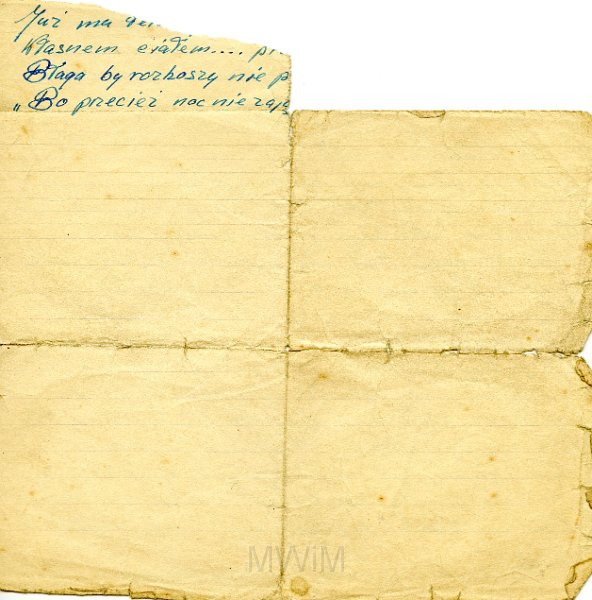 Już ma
własnem ciałem....
Błaga by rozkoszy nie p
„Bo przecież noc nie zają
MWiM